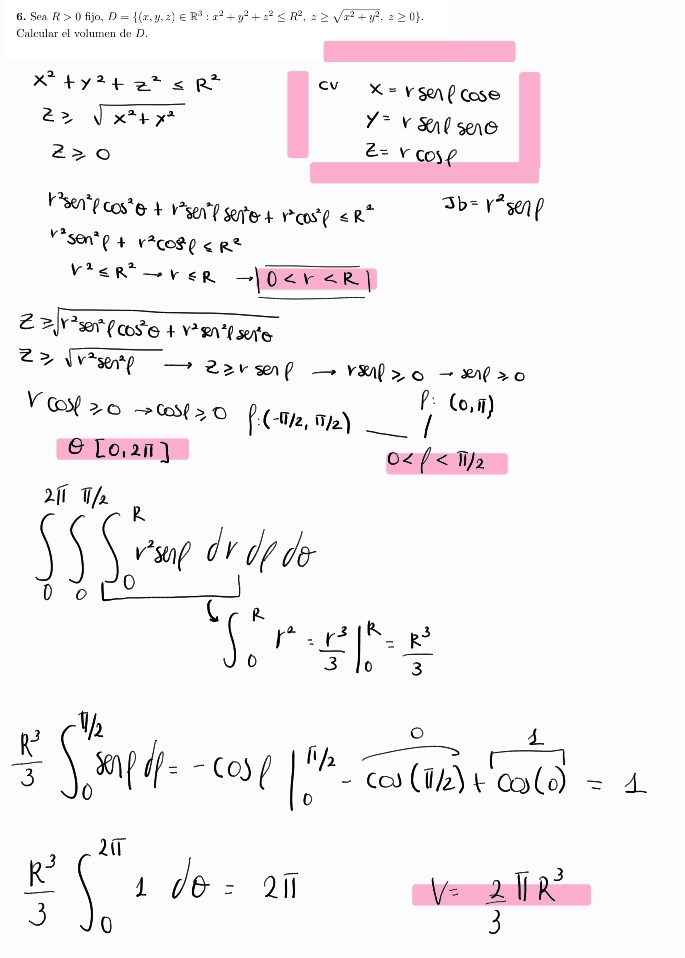 6. Sea R > 0 fijo, D = {(x, y, z) ∈ ℝ³ : x² + y² + z² ≤ R², z ≥ √(x² + y²), z ≥ 0}.
Calcular el volumen de D.
x² + y² + z² ≤ R²
z ≥ √(x² + y²)
z ≥ 0
CV x = r senφ cosθ
y = r senφ senθ
z = r cosφ
Jb = r² senφ
r²sen²φ cos²θ + r²sen²φ sen²θ + r²cos²φ ≤ R²
r²sen²φ + r²cos²φ ≤ R²
r² ≤ R² → r ≤ R → 0 < r < R
z ≥ √(r²sen²φ cos²θ + r²sen²φ sen²θ)
z ≥ √(r²sen²φ) → z ≥ r senφ → r senφ ≥ 0 → senφ ≥ 0
r cosφ ≥ 0 → cosφ ≥ 0 φ:(-π/2, π/2) φ: (0, π)
θ [0, 2π] 0 < φ < π/2
∫₀^2π ∫₀^π/2 ∫₀^R r²senφ dr dφ dθ
∫₀^R r² = r³/3 |₀^R = R³/3
R³/3 ∫₀^π/2 senφ dφ = - cosφ |₀^π/2 - cos(π/2) + cos(0) = 1
0 1
R³/3 ∫₀^2π 1 dθ = 2π V = 2/3 π R³